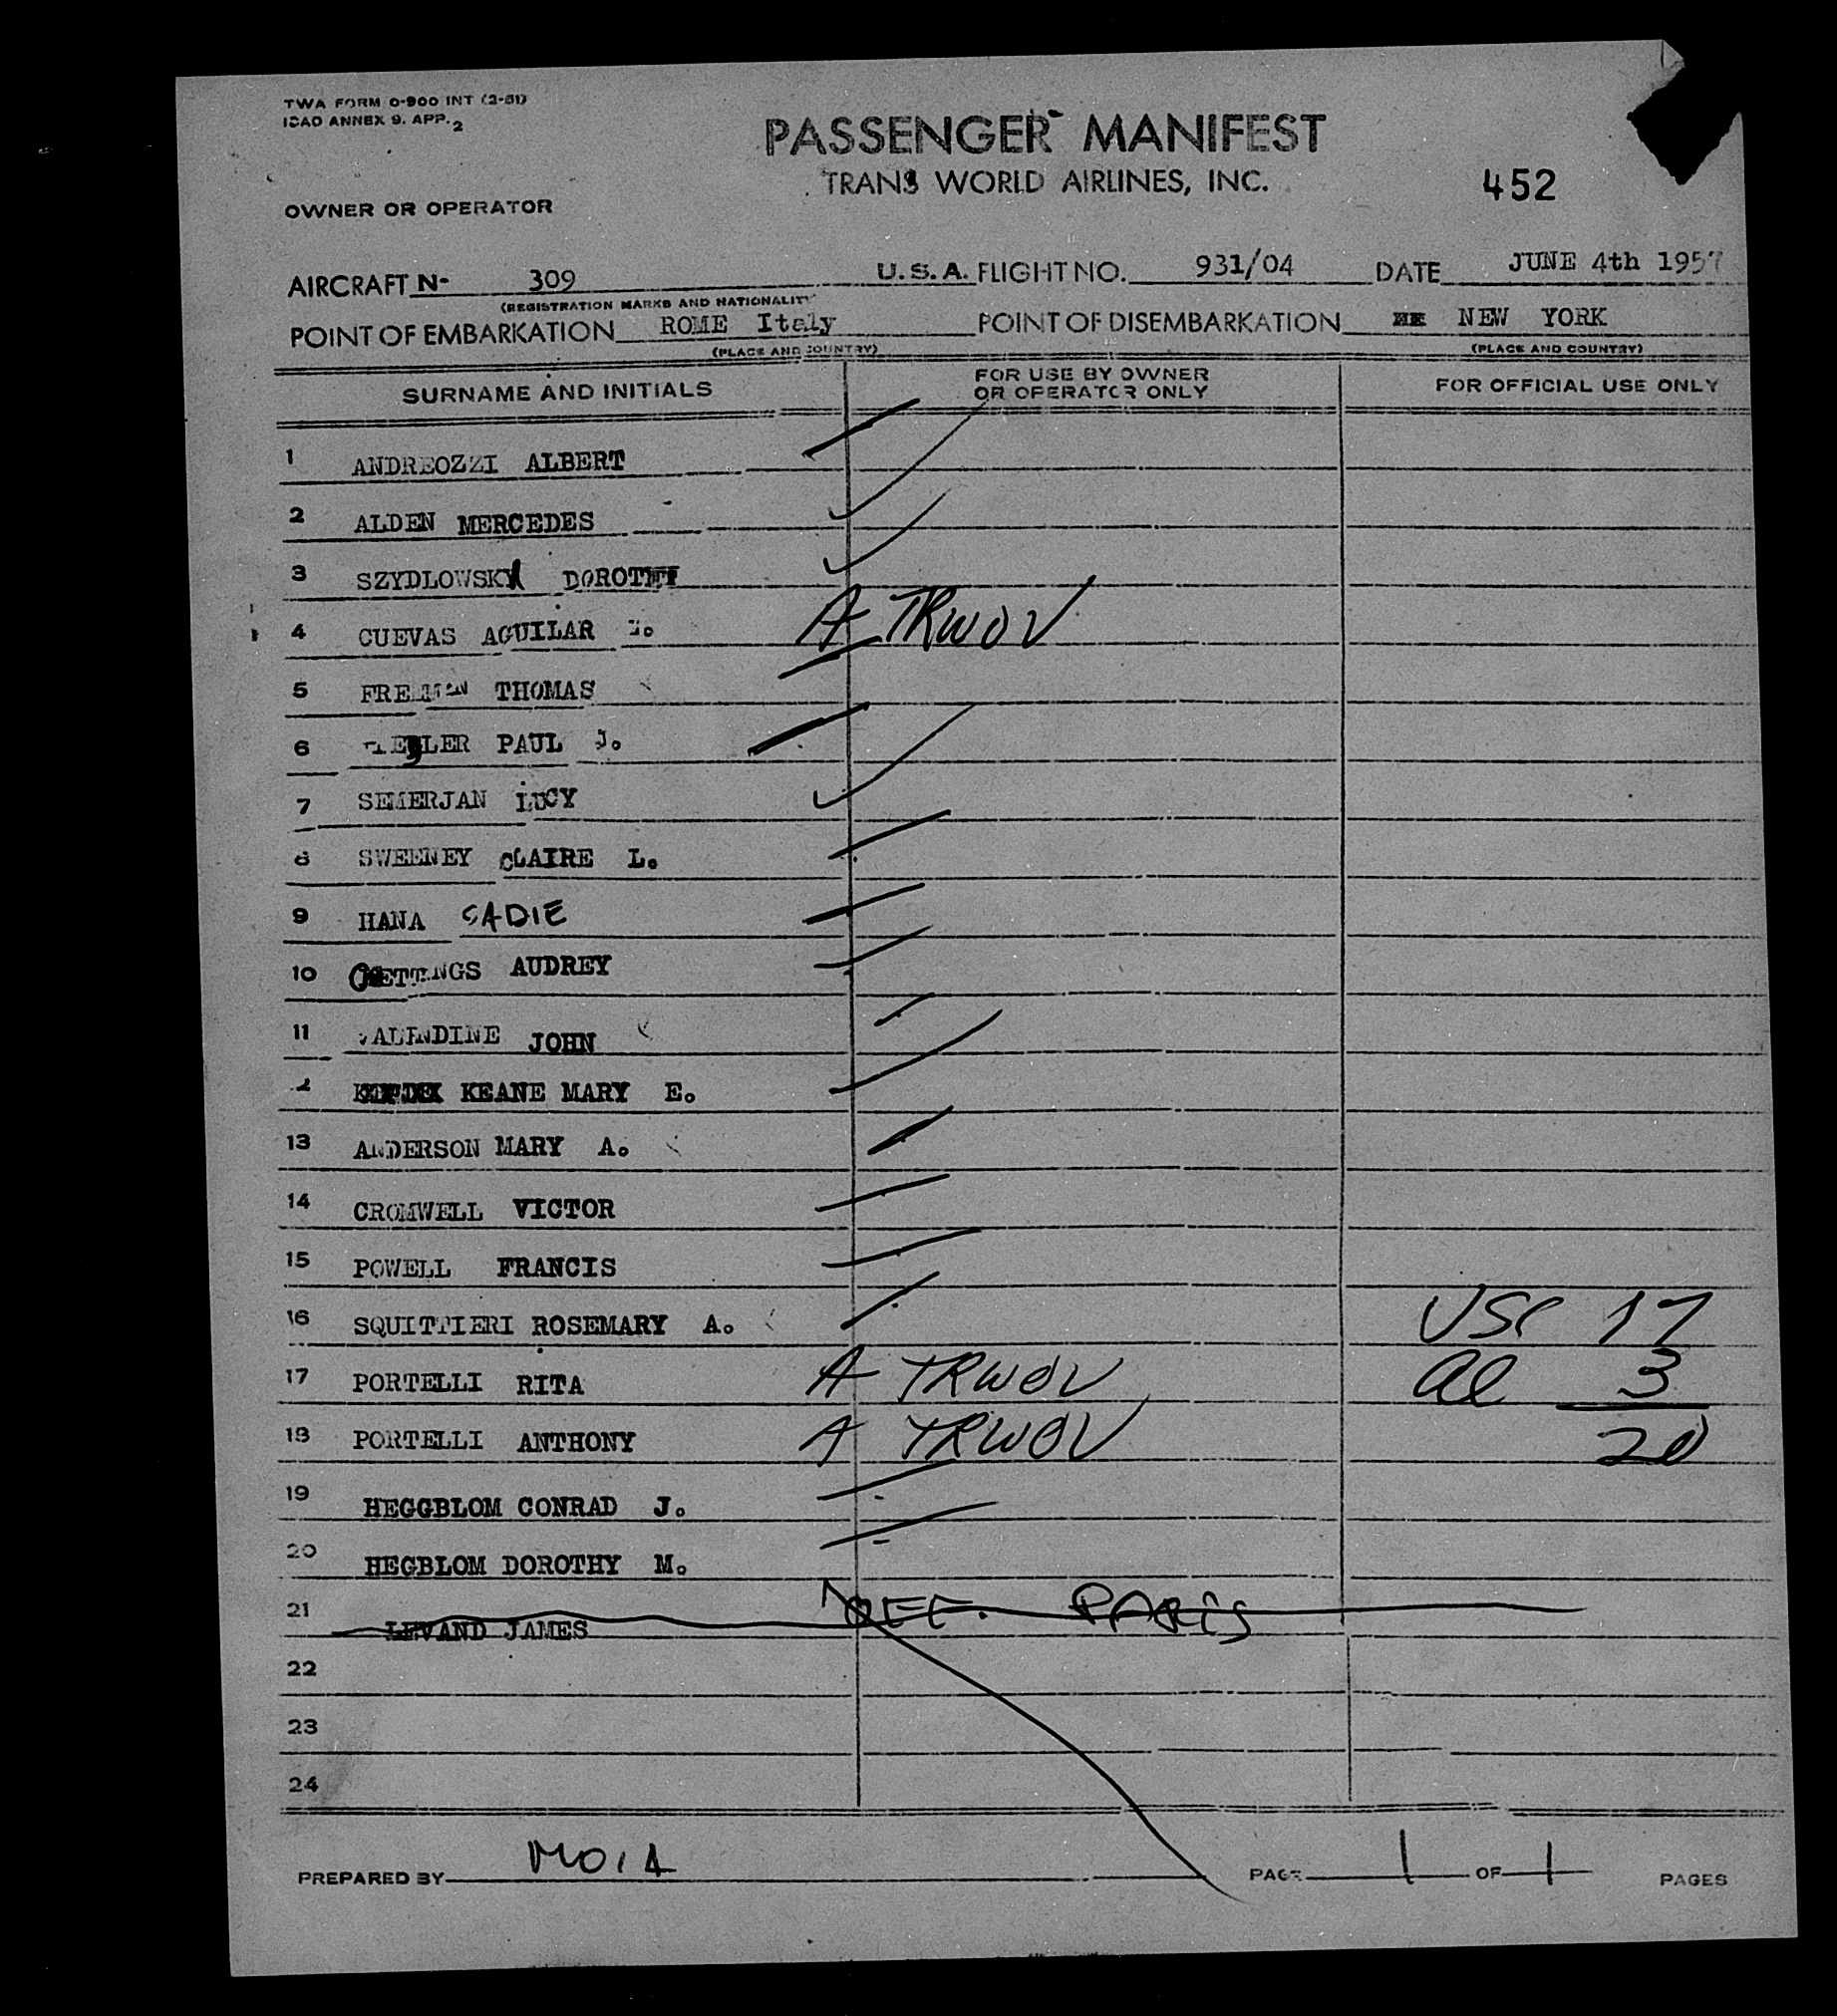 TWA FORM O-900 INT (2-51)
ICAO ANNEX 9. APP. 2
PASSENGER MANIFEST
TRANS WORLD AIRLINES, INC.
452
OWNER OR OPERATOR
AIRCRAFT N- 309 U.S.A. FLIGHT NO. 931/04 DATE JUNE 4th 1957
(REGISTRATION MARKS AND NATIONALITY
POINT OF EMBARKATION ROME Italy POINT OF DISEMBARKATION NEW YORK
(PLACE AND COUNTRY) (PLACE AND COUNTRY)
SURNAME AND INITIALS FOR USE BY OWNER OR OPERATOR ONLY FOR OFFICIAL USE ONLY
1 ANDREOZZI ALBERT
2 ALDEN MERCEDES
3 SZYDLOWSKY
4 CUEVAS AGUILAR A TRWOV
5 FREEMAN THOMAS
6 PAUL J.
7 SEMERJAN LUCY
8 SWEENEY CLAIRE L.
9 HANA SADIE
10 AUDREY
11 JOHN
KEANE MARY E.
13 ANDERSON MARY A.
14 CROMWELL VICTOR
15 POWELL FRANCIS
16 SQUITTIERI ROSEMARY A. USC 17
17 PORTELLI RITA A TRWOV al 3
18 PORTELLI ANTHONY A TRWOV 20
19 HEGGBLOM CONRAD J.
20 HEGBLOM DOROTHY M.
21 LEVAND JAMES PARIS
22
23
24
PREPARED BY PAGE 1 OF 1 PAGES